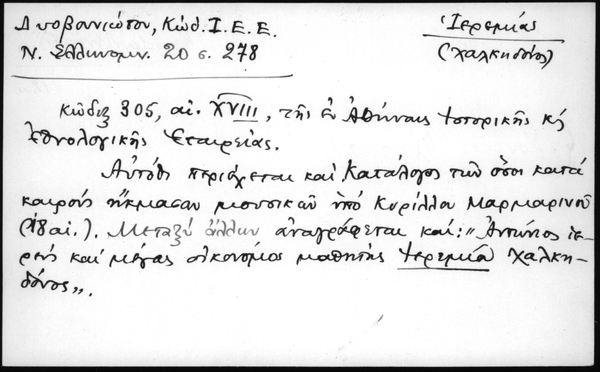 Δυοβουνιώτου, Κώδ. Ι. Ε. Ε.
Ν. Ἑλληνομν. 20 σ. 278
Ἱερεμίας
(Χαλκηδόνος)
Κώδιξ 305, αἰ. XVIII, τῆς ἐν Ἀθήναις Ἱστορικῆς κ
Ἐθνολογικῆς Ἑταιρείας.
Αὐτόθι περιέχεται καὶ Κατάλογος τῶν ὅσοι κατὰ
καιροὺς ἤκμασαν μουσικῶν ὑπὸ Κυρίλλου Μαρμαρινοῦ
(ιηʹ αἰ.). Μεταξὺ ἄλλων ἀναγράφεται καί: "Ἀντώνιος ἱε-
ρεὺς καὶ μέγας οἰκονόμος μαθητὴς Ἱερεμία Χαλκη-
δόνος".